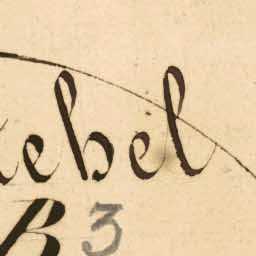 ebel
B 3